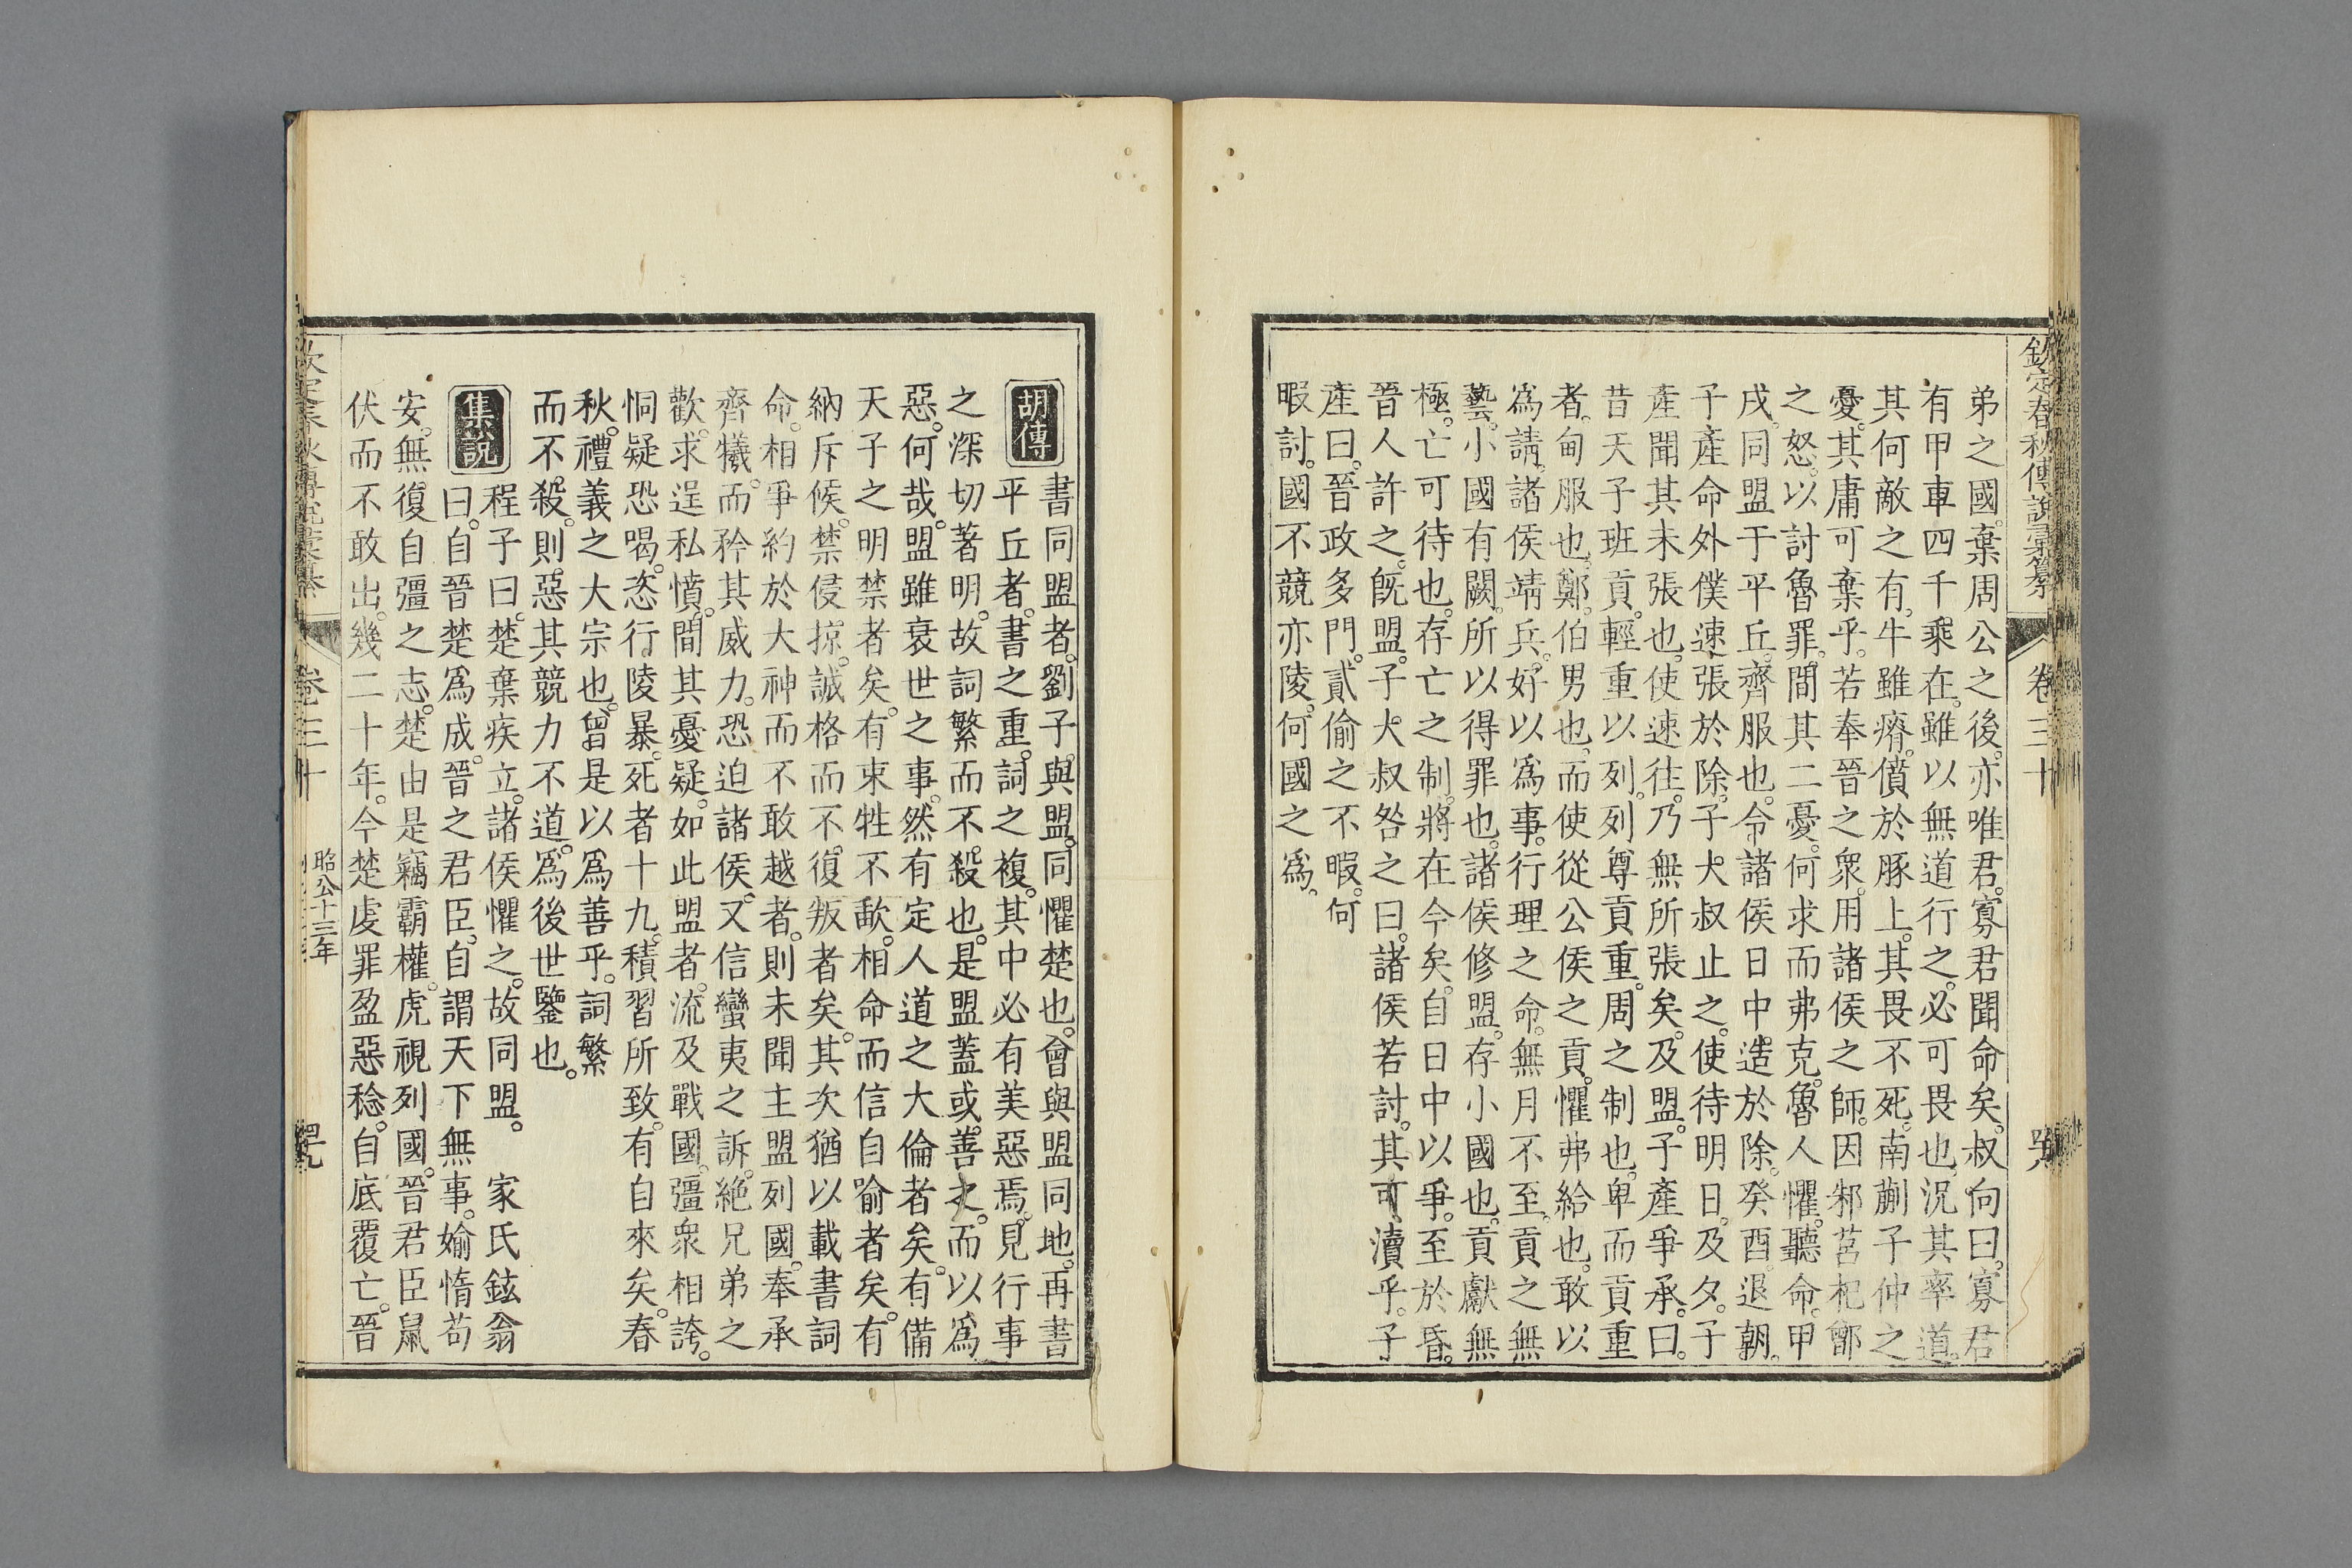 欽定春秋傳說彙纂 卷三十
弟之國。棄周公之後。亦唯君。寡君聞命矣。叔向曰。寡君
有甲車四千乘在。雖以無道行之。必可畏也。況其率道。
其何敵之有。牛雖瘠。僨於豚上。其畏不死。南蒯子仲之
憂。其庸可棄乎。若奉晉之衆。用諸侯之師。因邾莒杞鄫
之怒。以討魯罪。間其二憂。何求而弗克。魯人懼。聽命。甲
戌。同盟于平丘。齊服也。令諸侯日中造於除。癸酉。退朝。
子產命外僕速張於除。子大叔止之。使待明日。及夕。子
產聞其未張也。使速往。乃無所張矣。及盟。子產爭承。曰。
昔天子班貢。輕重以列。列尊貢重。周之制也。卑而貢重
者。甸服也。鄭。伯男也。而使從公侯之貢。懼弗給也。敢以
為請。諸侯靖兵。好以為事。行理之命。無月不至。貢之無
藝。小國有闕。所以得罪也。諸侯修盟。存小國也。貢獻無
極。亡可待也。存亡之制。將在今矣。自日中以爭。至於昏。
晉人許之。旣盟。子大叔咎之曰。諸侯若討。其可瀆乎。子
產曰。晉政多門。貳偷之不暇。何
暇討。國不競亦陵。何國之為。
胡傳
書同盟者。劉子與盟。同懼楚也。會與盟同地。再書
平丘者。書之重。詞之複。其中必有美惡焉。見行事
之深切著明。故詞繁而不殺也。是盟蓋或善之。而以為
惡。何哉。盟雖衰世之事。然有定人道之大倫者矣。有備
天子之明禁者矣。有束牲不歃。相命而信自喻者矣。有
納斥候。禁侵掠。誠格而不復叛者矣。其次猶以載書詞
命。相爭約於大神而不敢越者。則未聞主盟列國。奉承
齊犧。而矜其威力。恐迫諸侯。又信蠻夷之訴。絶兄弟之
歡。求逞私憤。間其憂疑。如此盟者。流及戰國。彊衆相誇。
恫疑恐喝。恣行陵暴。死者十九。積習所致。有自來矣。春
秋。禮義之大宗也。曾是以為善乎。詞繁
而不殺。則惡其競力不道。為後世鑒也。
集說
程子曰。楚棄疾立。諸侯懼之。故同盟。 家氏鉉翁
曰。自晉楚為成。晉之君臣。自謂天下無事。媮惰苟
安。無復自彊之志。楚由是竊霸權。虎視列國。晉君臣鼠
伏而不敢出。幾二十年。今楚虔罪盈惡稔。自底覆亡。晉
卷三十 昭公十三年